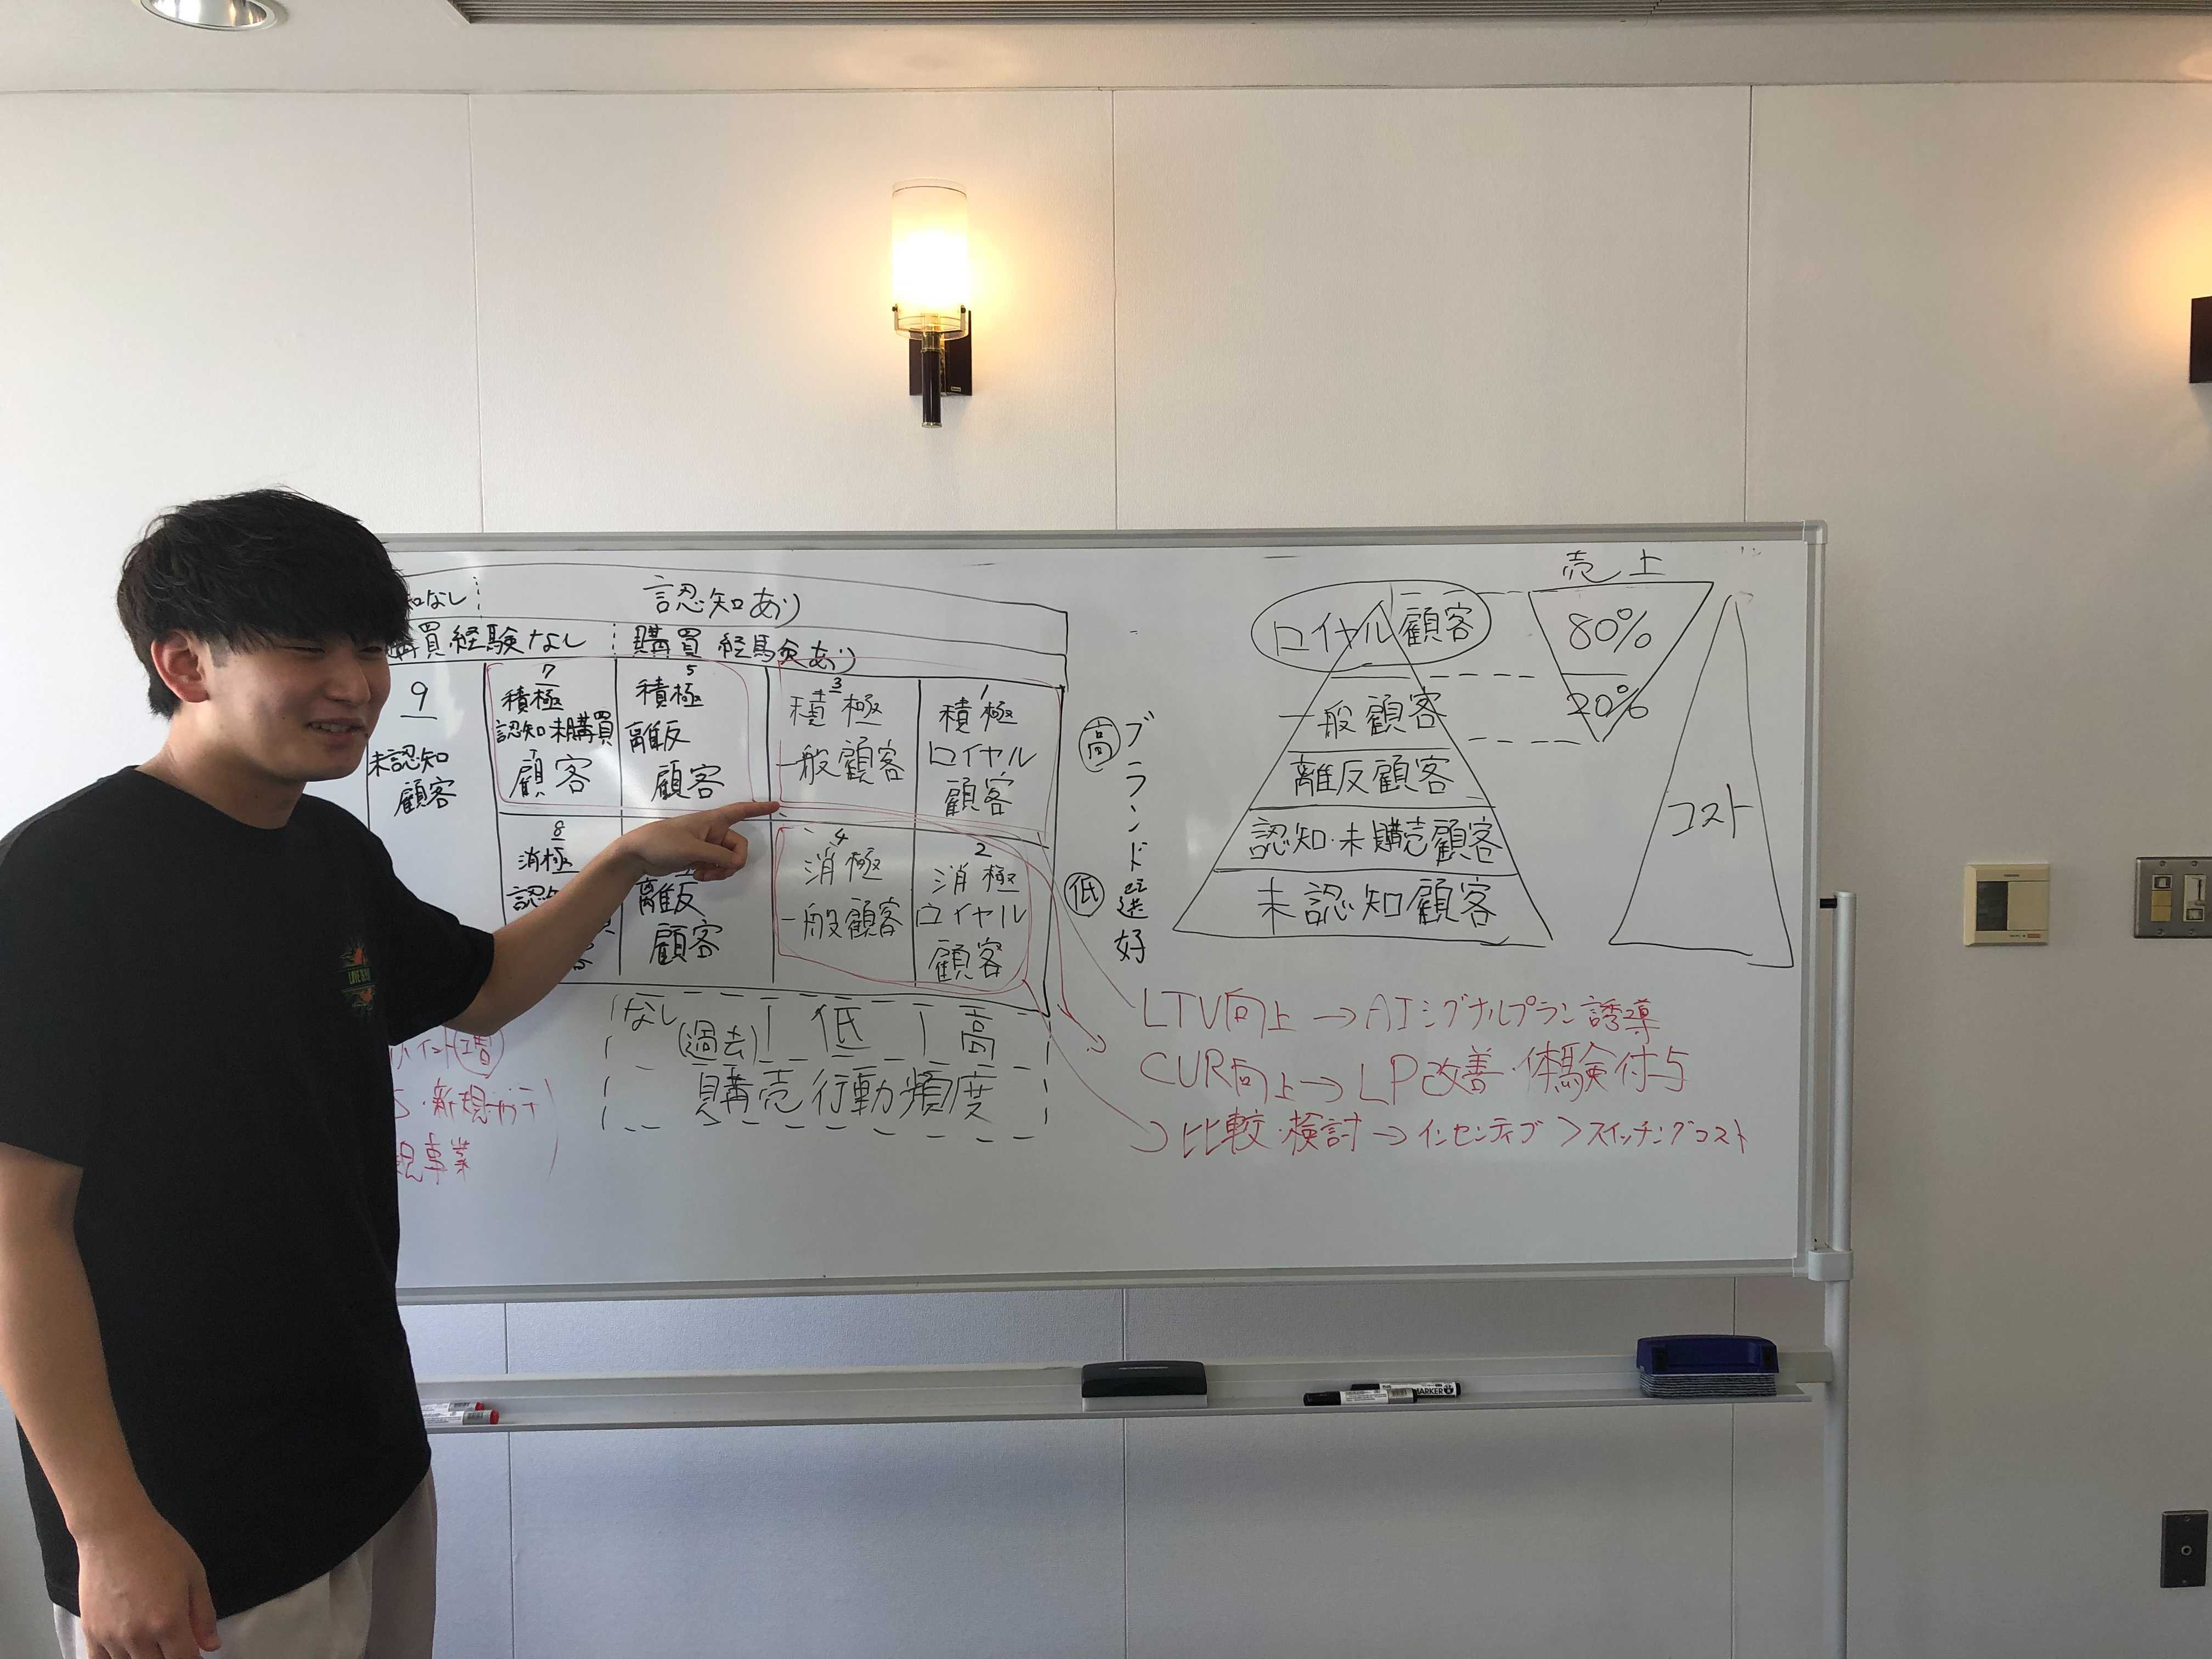 知なし
認知あり
購買経験なし
購買経験あり
9
未認知
顧客
7
積極
認知・未購買
顧客
5
積極
離反
顧客
3
積極
一般顧客
1
積極
ロイヤル
顧客
8
消極
認知
離反
顧客
4
消極
一般顧客
2
消極
ロイヤル
顧客
高
低
ブランド選好
なし
(過去)
低
高
購売行動頻度
新規
事業
ロイヤル顧客
一般顧客
離反顧客
認知・未購売顧客
未認知顧客
売上
80%
20%
コスト
LTV向上→AIシグナルプラン誘導
CUR向上→LP改善・体験付与
比較・検討→インセンティブ>スイッチングコスト
MARKER